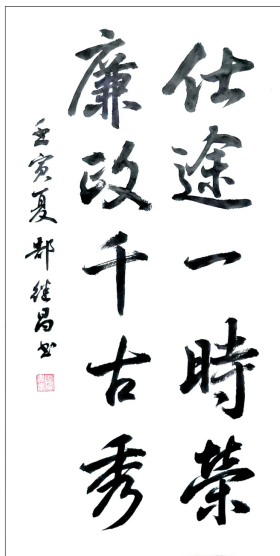 仕途一時榮
廉政千古秀
壬寅夏郜继昌书